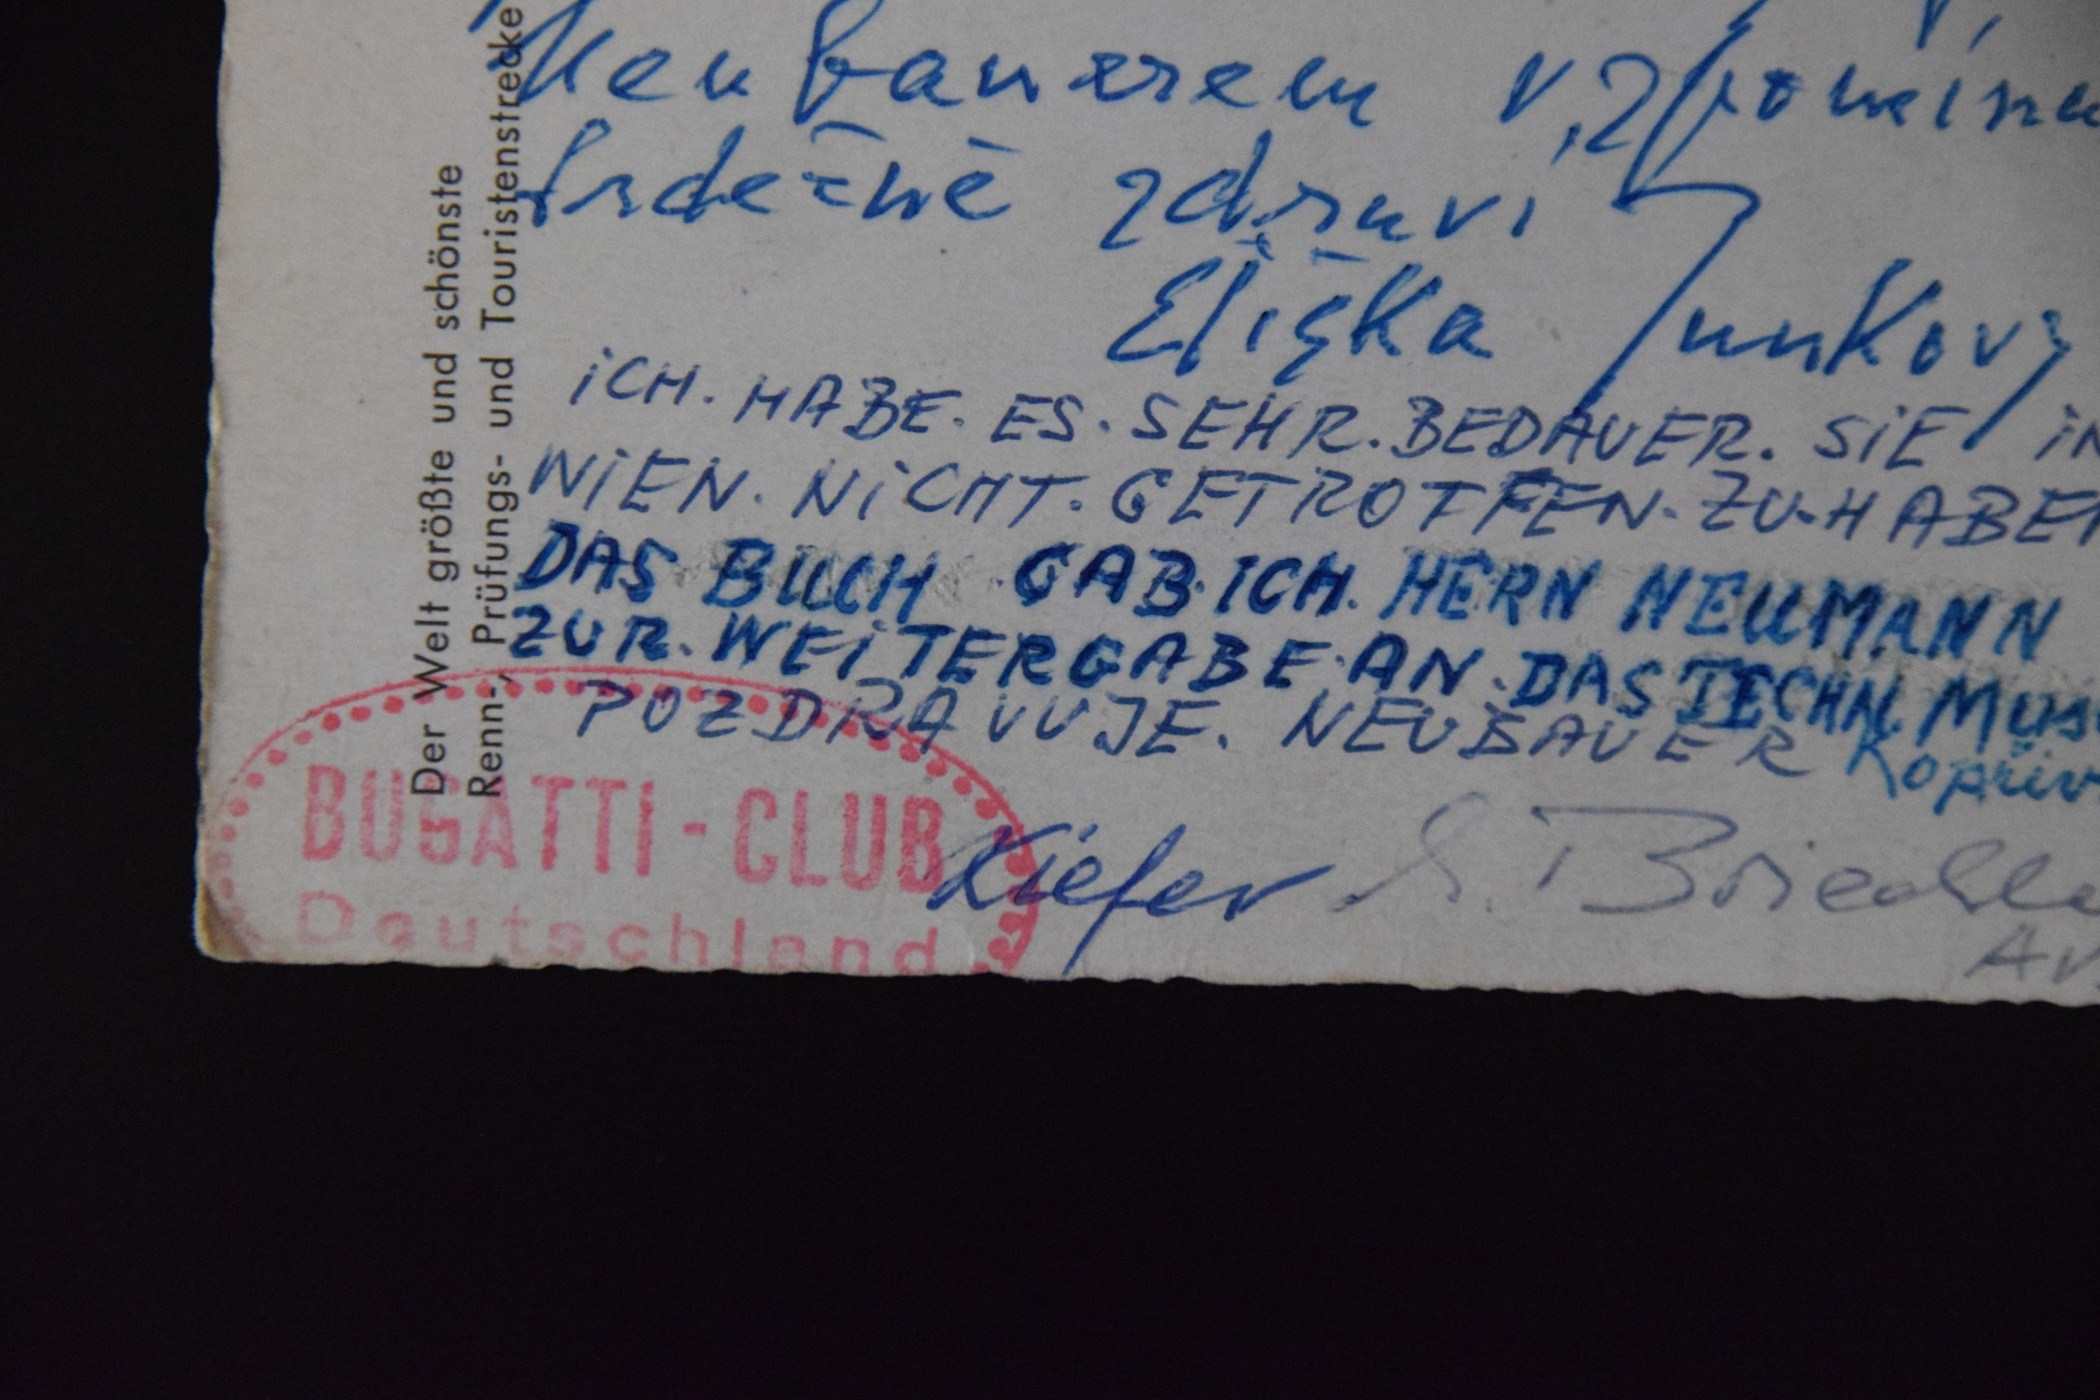 Der Welt größte und schönste
Renn-, Prüfungs- und Touristenstrecke
Neubauerem
Srdečně zdraví
Eliška Junková
iCH. HABE. ES. SEHR. BEDAUER. SiE iN
WiEN. NiCHT. GETROFFEN. ZU. HABEN
DAS BUCH GAB. ICH. HERN NEUMANN
ZUR. WEiTERGABE. AN. DAS TECHN. MUS
POZDRAVUJE. NEUBAUER
BUGATTI - CLUB
Deutschland
Kiefer